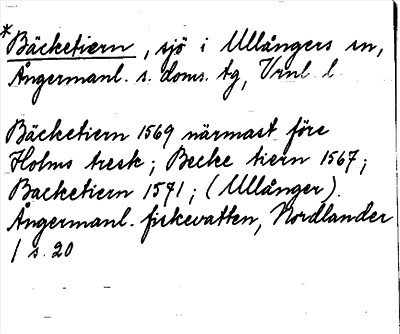 *Bäcketiern, sjö i Ullångers sn,
Ångermanl. s. doms. tg, Vrnl l.
Bäcketiern 1569 närmast före
Holms tresk; Becke tiern 1567;
Backetiern 1571; (Ullånger).
Ångermanl. fiskevatten, Nordlander
1 s. 20